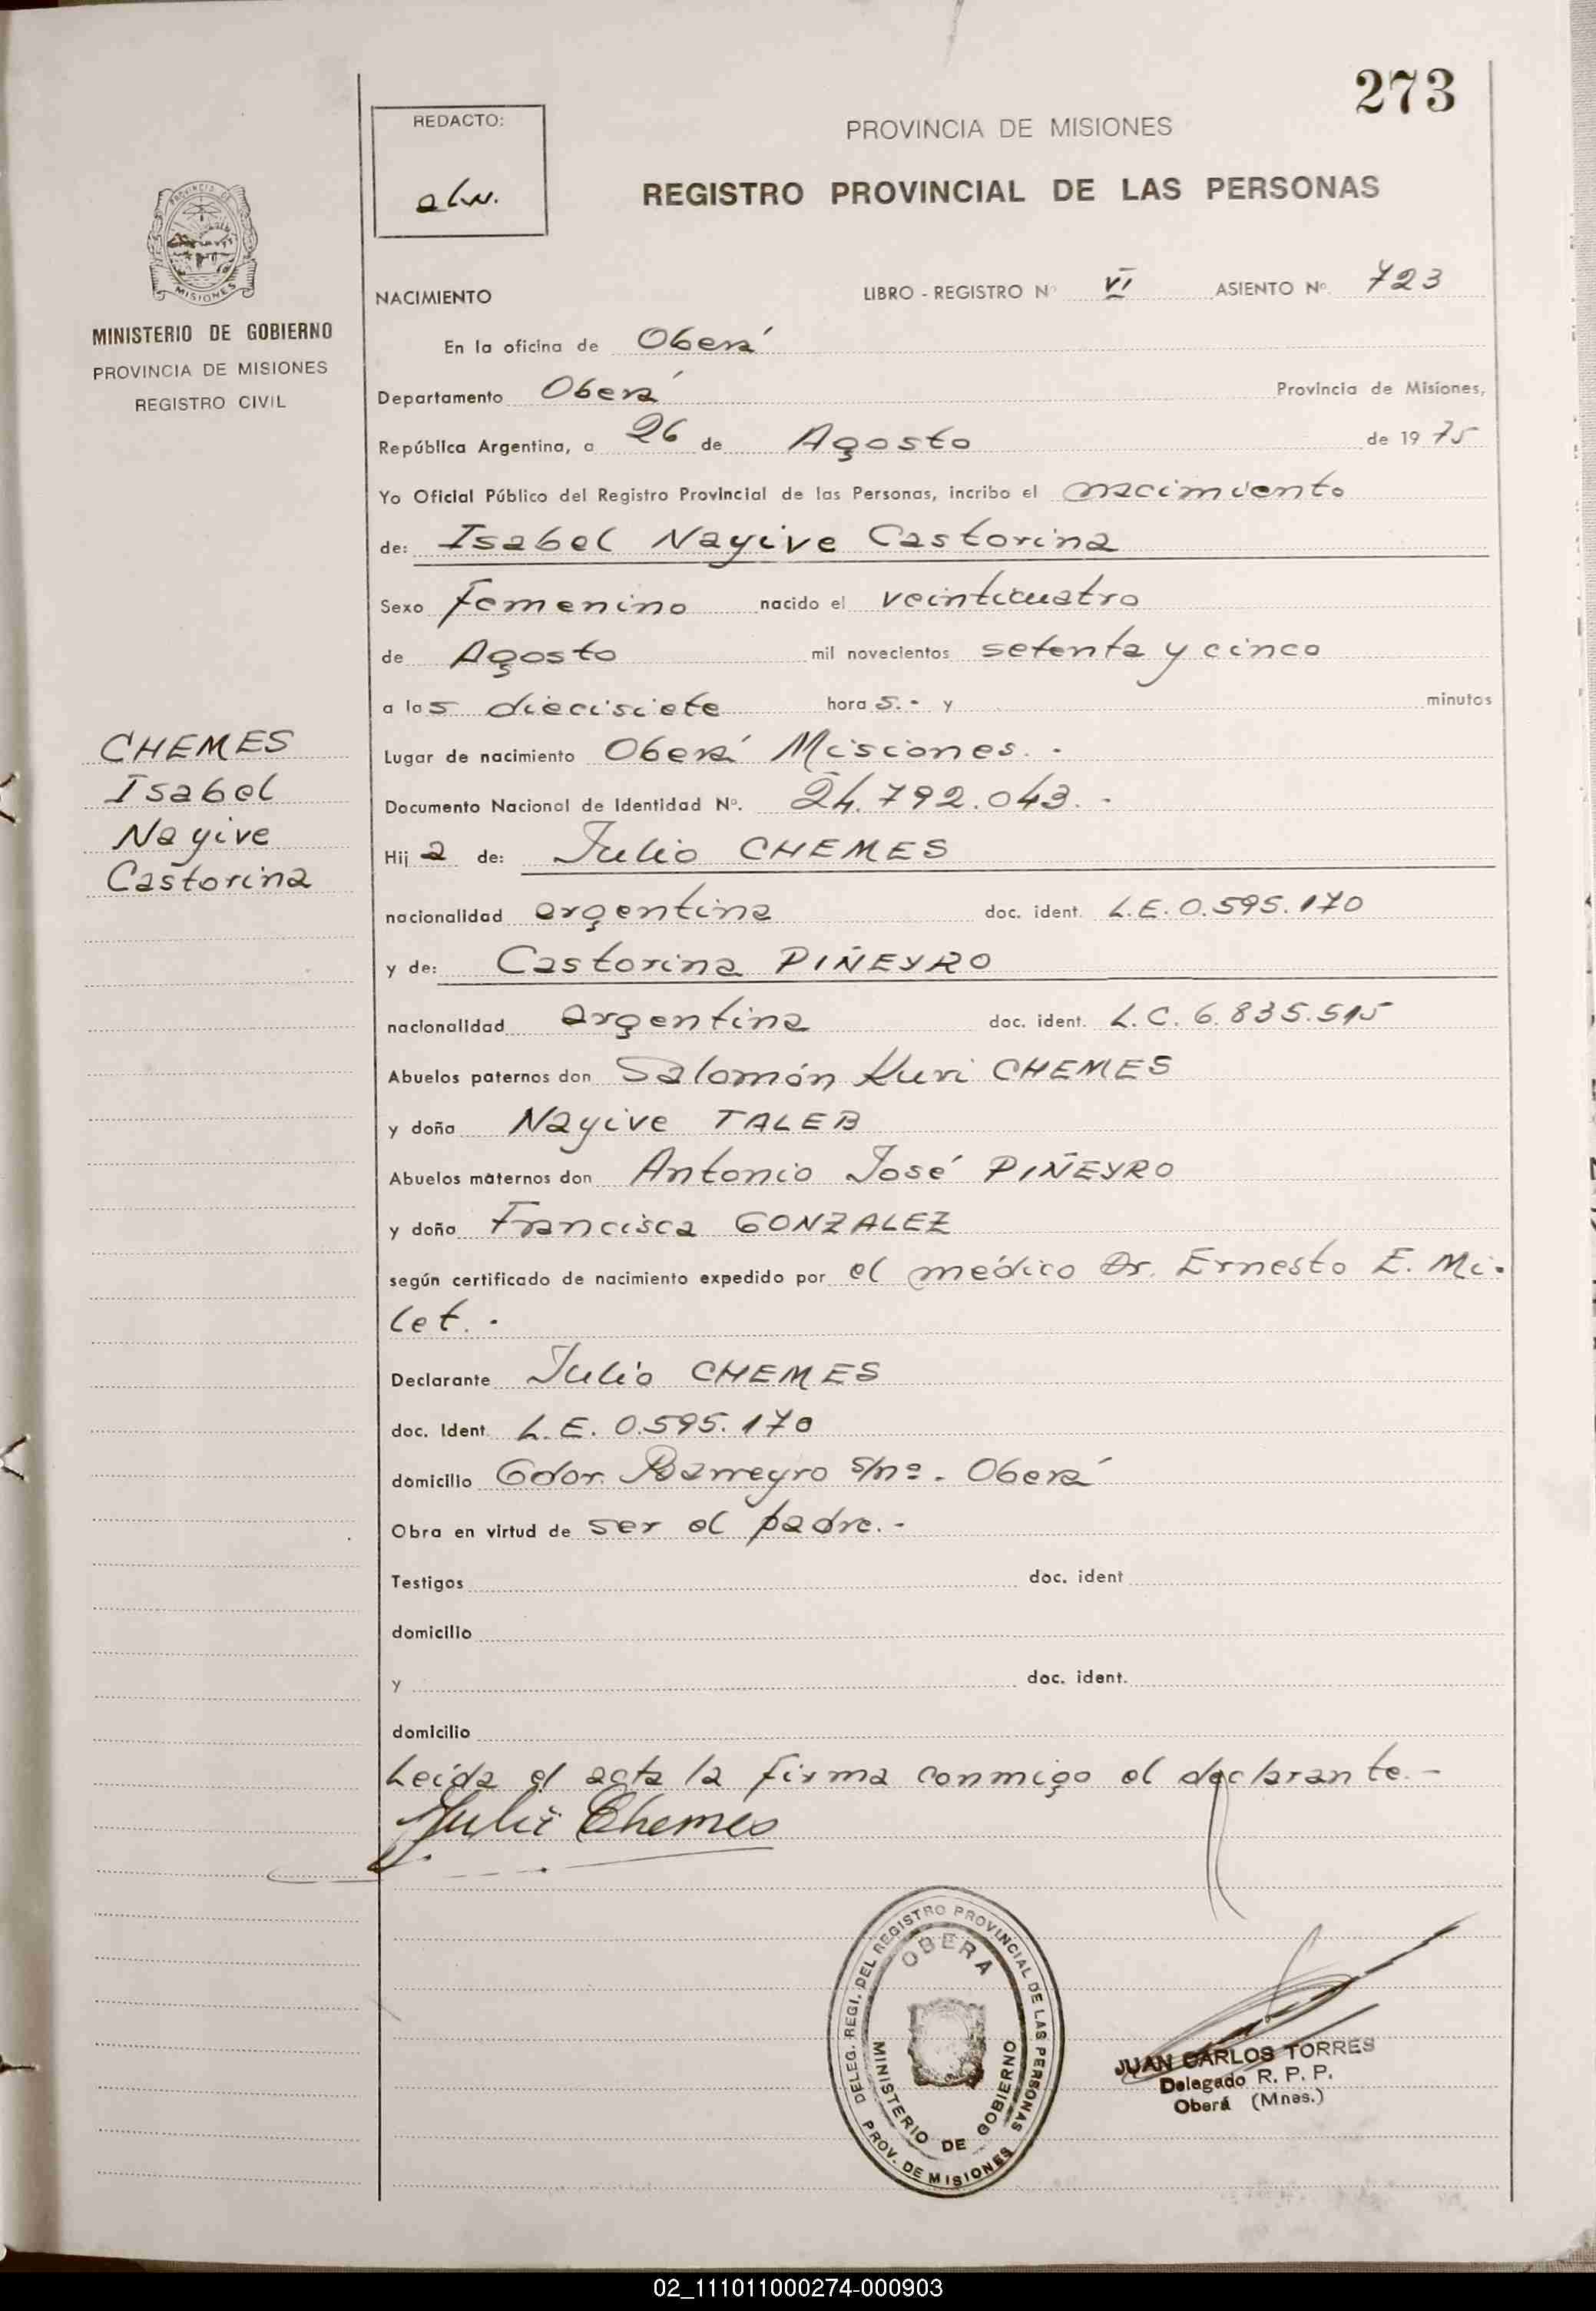 273
REDACTO:
PROVINCIA DE MISIONES
REGISTRO PROVINCIAL DE LAS PERSONAS
PROVINCIA DE
MISIONES
MINISTERIO DE GOBIERNO
PROVINCIA DE MISIONES
REGISTRO CIVIL
NACIMIENTO LIBRO - REGISTRO Nº VI ASIENTO Nº 723
En la oficina de Oberá
Departamento Oberá Provincia de Misiones,
República Argentina, a 26 de Agosto de 1975
Yo Oficial Público del Registro Provincial de las Personas, incribo el nacimiento
de: Isabel Nayive Castorina
Sexo Femenino nacido el veinticuatro
de Agosto mil novecientos setenta y cinco
a las diecisiete horas.- y minutos
CHEMES
Isabel
Nayive
Castorina
Lugar de nacimiento Oberá Misiones.-
Documento Nacional de Identidad Nº. 24.792.043.-
Hija de: Julio CHEMES
nacionalidad argentina doc. ident. L.E. 0.595.170
y de: Castorina PIÑEYRO
nacionalidad argentina doc. ident. L.C. 6.835.515
Abuelos paternos don Salomón Kuri CHEMES
y doña Nayive TALEB
Abuelos maternos don Antonio José PIÑEYRO
y doña Francisca GONZALEZ
según certificado de nacimiento expedido por el médico Dr. Ernesto E. Mi-
let.-
Declarante Julio CHEMES
doc. Ident. L.E. 0.595.170
domicilio Gdor. Barreyro s/nº. Oberá
Obra en virtud de ser el padre.-
Testigos doc. ident
domicilio
y doc. ident.
domicilio
Leída el acta la firma conmigo el declarante.-
Julio Chemes
DELEG. REGI. DEL REGISTRO PROVINCIAL DE LAS PERSONAS
OBERA
MINISTERIO DE GOBIERNO
PROV. DE MISIONES
JUAN CARLOS TORRES
Delegado R. P. P.
Oberá (Mnes.)
02_111011000274-000903